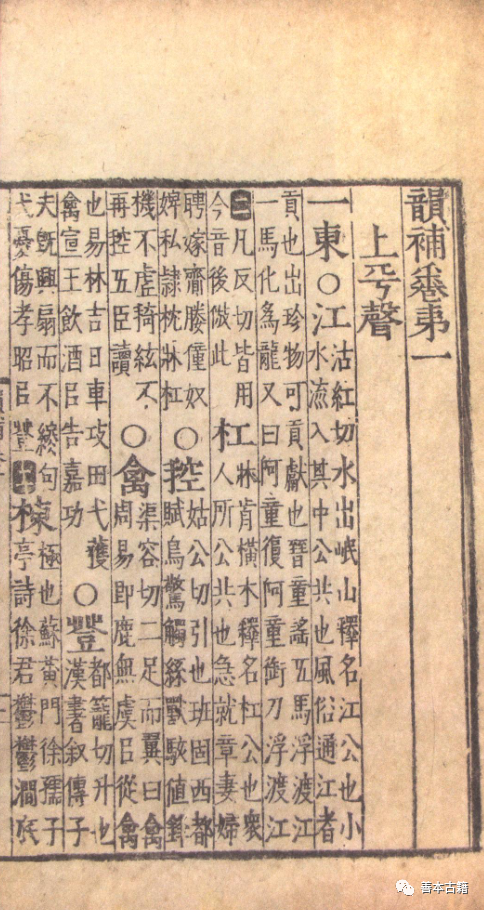 韻補卷弟一
上平聲
一東○江沽紅切水出岷山釋名江公也小
水流入其中公共也風俗通江者
貢也出珍物可貢獻也晉童謠五馬浮渡江
一馬化爲龍又曰阿童復阿童銜刀浮渡江
凡反切皆用
今音後倣此
杠牀肯橫木釋名杠公也衆
人所公共也急就章妻婦
聘嫁齎媵僮奴
婢私隷枕牀杠
○控姑公切引也班固西都
賦鳥驚觸絲獸駭値鋒
機不虛掎絃不
再控五臣讀
○禽渠容切二足而翼曰禽
周易即鹿無虞㠯從禽
也易林吉日車攻田弋獲
禽宣王飲酒㠯告嘉功
○登都籠切升也
漢書叙傳子
夫旣興扇而不終句
弋憂傷孝昭㠯登
棟極也蘇黃門徐孺子
亭詩徐君鬱鬱澗底
善本古籍